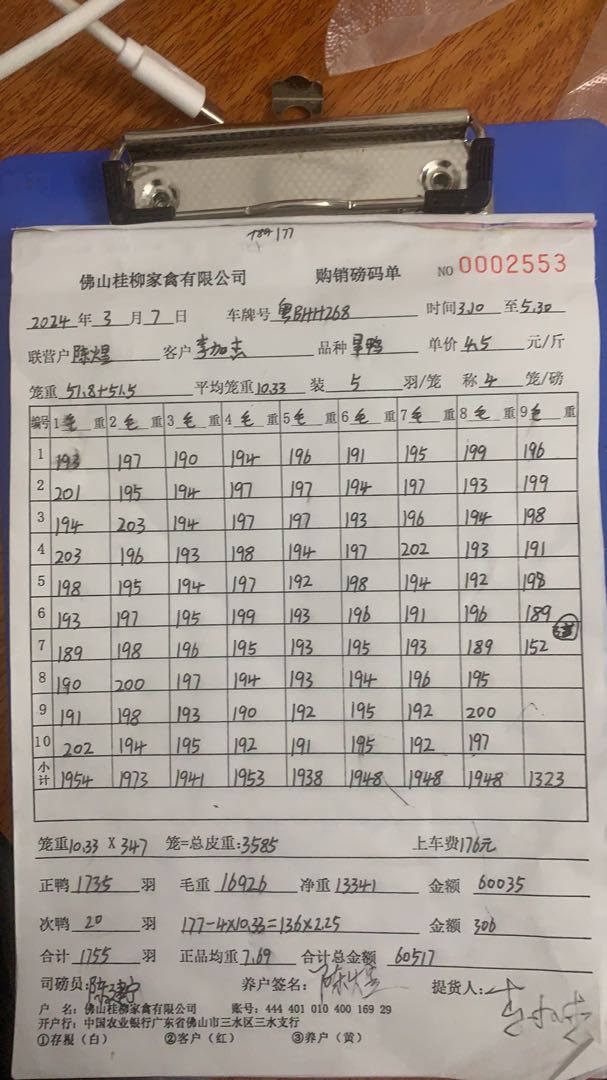 佛山桂柳家禽有限公司 购销磅码单 NO 0002553
2024 年 3 月 7 日 车牌号 粤BHH268 时间 3.10 至 5.30
联营户 陈煜 客户 李加志 品种 旱鸭 单价 4.5 元/斤
笼重 51.8+51.5 平均笼重 10.33 装 5 羽/笼 称 4 笼/磅
编号 1 毛 重 2 毛 重 3 毛 重 4 毛 重 5 毛 重 6 毛 重 7 毛 重 8 毛 重 9 毛 重
1 193 197 190 194 196 191 195 199 196
2 201 195 194 197 197 194 197 193 199
3 194 203 194 197 197 193 196 194 198
4 203 196 193 198 194 197 202 193 191
5 198 195 194 197 192 198 194 192 198
6 193 197 195 199 193 196 191 196 189
7 189 198 196 195 193 195 193 189 152
8 190 200 197 194 193 194 196 195
9 191 198 193 190 192 195 192 200
10 202 194 195 192 191 195 192 197
小计 1954 1973 1941 1953 1938 1948 1948 1948 1323
笼重 10.33 X 347 笼=总皮重: 3585 上车费 176元
正鸭 1735 羽 毛重 16926 净重 13341 金额 60035
次鸭 20 羽 177-4×10.33=136×2.25 金额 306
合计 1755 羽 正品均重 7.69 合计总金额 60517
司磅员: 养户签名: 提货人:
户 名: 佛山桂柳家禽有限公司 账号: 444 401 010 400 169 29
开户行: 中国农业银行广东省佛山市三水区三水支行
①存根（白） ②客户（红） ③养户（黄）